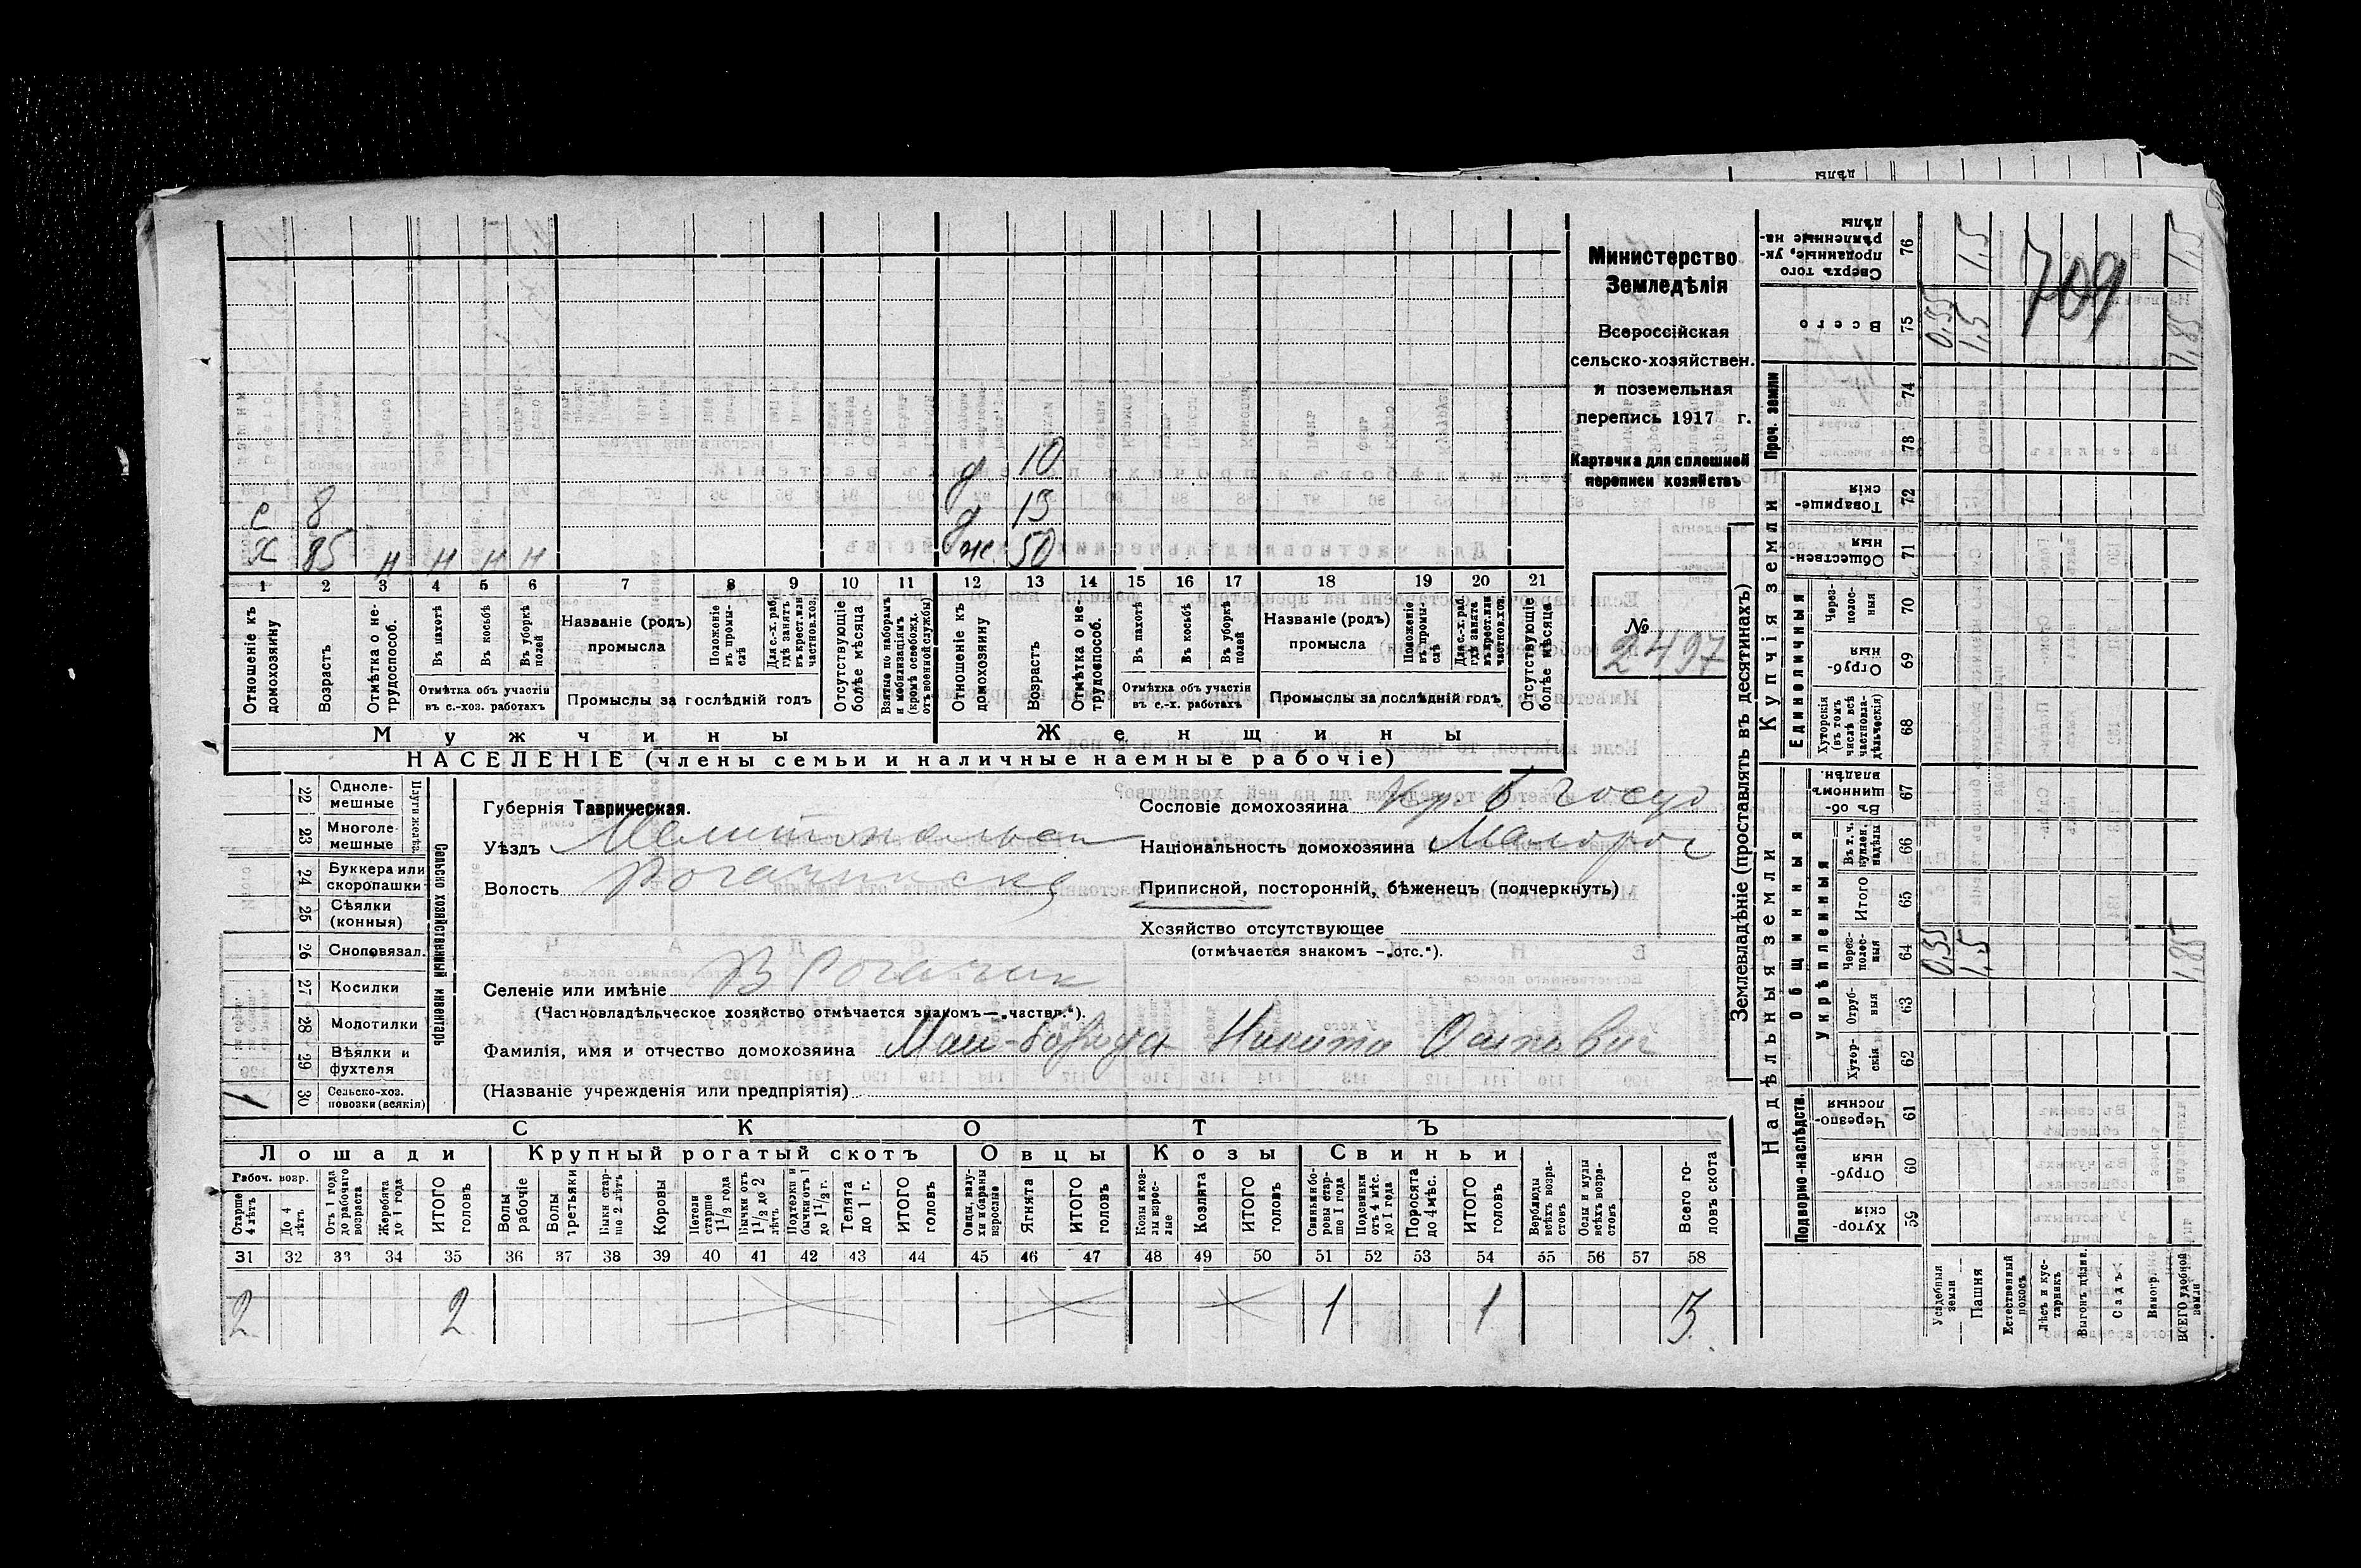 Министерство
Земледѣлія
Всероссійская
сельско-хозяйствен.
и поземельная
перепись 1917 г.
Карточка для сплошной
переписи хозяйствъ
№
2497
709
д 10
с 8 д 13
х 85 н н н н ж. 50
1 2 3 4 5 6 7 8 9 10 11 12 13 14 15 16 17 18 19 20 21
Отношеніе къ домохозяину
Возрастъ
Отмѣтка о не-трудоспособ.
Въ пахотѣ
Въ косьбѣ
Въ уборкѣ полей
Отмѣтка объ участіи въ с.-хоз. работахъ
Названіе (родъ) промысла
Положеніе въ промы-слѣ
Для с.-х. раб. гдѣ занятъ въ крест. или частнов. хоз.
Промыслы за послѣдній годъ
Отсутствующіе болѣе мѣсяца
Взятые по наборамъ и мобилизаціямъ (кромѣ освобожд. отъ военной службы)
Отношеніе къ домохозяину
Возрастъ
Отмѣтка о не-трудоспособ.
Въ пахотѣ
Въ косьбѣ
Въ уборкѣ полей
Отмѣтка объ участіи въ с.-х. работахъ
Названіе (родъ) промысла
Положеніе въ промы-слѣ
Для с.-х. раб. гдѣ занята въ крест. или частнов. хоз.
Промыслы за послѣдній годъ
Отсутствующіе болѣе мѣсяца
Мужчины Женщины
НАСЕЛЕНІЕ (члены семьи и наличные наемные рабочіе)
22 Одноле-мешные
23 Многоле-мешные
Плуги желѣз.
24 Буккера или скоропашки
25 Сѣялки (конныя)
26 Сноповязал.
27 Косилки
28 Молотилки
29 Вѣялки и фухтеля
1 30 Сельско-хоз. повозки (всякія)
Сельско хозяйственный инвентарь
Губернія Таврическая.
Уѣздъ Мелитопольск
Волость Рогачинск
Селеніе или имѣніе В Рогачик
(Частновладѣльческое хозяйство отмѣчается знакомъ—„частвл.“).
Фамилія, имя и отчество домохозяина Никита
(Названіе учрежденія или предпріятія)
Сословіе домохозяина Кр. б госуд
Національность домохозяина Малорос
Приписной, посторонній, бѣженецъ (подчеркнуть)
Хозяйство отсутствующее
(отмѣчается знакомъ —„отс.“).
СКОТЪ
Лошади Крупный рогатый скотъ Овцы Козы Свиньи
Рабоч. возр.
Старше 4 лѣтъ
До 4 лѣтъ
Отъ 1 года до рабочаго возраста
Жеребята до 1 года
ИТОГО головъ
Волы рабочіе
Волы третьяки
Быки стар-ше 2 лѣтъ
Коровы
Нетели старше 1 1/2 года
Бычки отъ 1 1/2 до 2 лѣтъ
Подтелки и бычки отъ 1 до 1 1/2 г.
Телята до 1 г.
ИТОГО головъ
Овцы, валу-хи и бараны взрослые
Ягнята
ИТОГО головъ
Козы и коз-лы взрос-лые
Козлята
ИТОГО головъ
Свиньи и бо-ровы стар-ше 1 года
Подсвинки отъ 4 мѣс. до 1 года
Поросята до 4 мѣс.
ИТОГО головъ
Верблюды всѣхъ возра-стовъ
Ослы и мулы всѣхъ возра-стовъ
Всего го-ловъ скота
31 32 33 34 35 36 37 38 39 40 41 42 43 44 45 46 47 48 49 50 51 52 53 54 55 56 57 58
2 2 1 1 3
Землевладѣніе (проставлять въ десятинахъ)
Надѣльныя земли Купчія земли Проч. земли
Подворно-наслѣдств.
Общинныя
Укрѣпленныя
Единоличныя
Сверхъ того проданные, ук-рѣпленные на-дѣлы 76 1,5 1,5
Всего 75 0,35 1,5 1,85
74
73
Товарище-скія 72
Обществен-ныя 71
Через-полос-ныя 70
Отруб-ныя 69
Хуторскія (въ томъ числѣ всѣ частновла-дѣльческія) 68
Въ об-щинномъ владѣн. 67
Въ т. ч. куплен. надѣлы 66
Итого 65
Через-полос-ныя 64 0,35 1,5 1,85
Отруб-ныя 63
Хутор-скія 62
Черезпо-лосныя 61
Отруб-ныя 60
Хутор-скія 59
Усадебныя земли
Пашня
Естественный покосъ
Лѣсъ и кус-тарникъ
Выгонъ цѣлин.
Садъ
Виногр.
ВСЕГО удобной земли